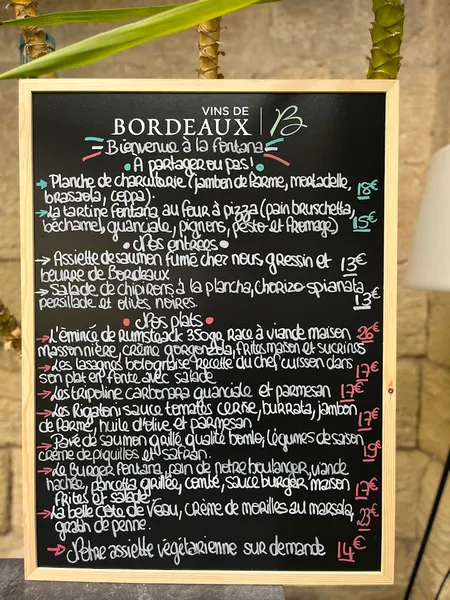 VINS DE
BORDEAUX | B
Bienvenue à la Fontana
• A partager ou pas! •
→ Planche de charcuterie (jambon de Parme, mortadelle, 18€
brasaola, coppa).
→ La tartine Fontana au four à pizza (pain bruschetta, 15€
béchamel, guanciale, pignons, pesto et fromage)
• Nos entrées •
→ Assiette de saumon fumé chez nous gressin et 13€
beurre de Bordeaux
→ Salade de chipirons à la plancha, chorizo spianata 13€
persillade et olives noires.
• Nos plats •
→ L'émincé de Rumsteack 350gr Race à viande maison 26€
massonnière, crème gorgonzola, frites maison et sucrines
→ Les lasagnes bolognaise recette du chef cuisson dans 17€
son plat en fonte avec salade
→ Les tripoline carbonara guanciale et parmesan 17€
→ Les Rigatoni sauce tomates cerise, burrata, jambon 17€
de Parme, huile d'olive et parmesan
→ Pavé de saumon grillé qualité bomlo, légumes de saison 19€
crème de piquillos et safran.
→ Le Burger Fontana, pain de notre boulanger, viande
hachée, pancetta grillée, comté, sauce burger maison 17€
frites et salade
→ La belle Côte de Veau, crème de morilles au marsala, 23€
gratin de penne.
→ Notre assiette végétarienne sur demande 14€